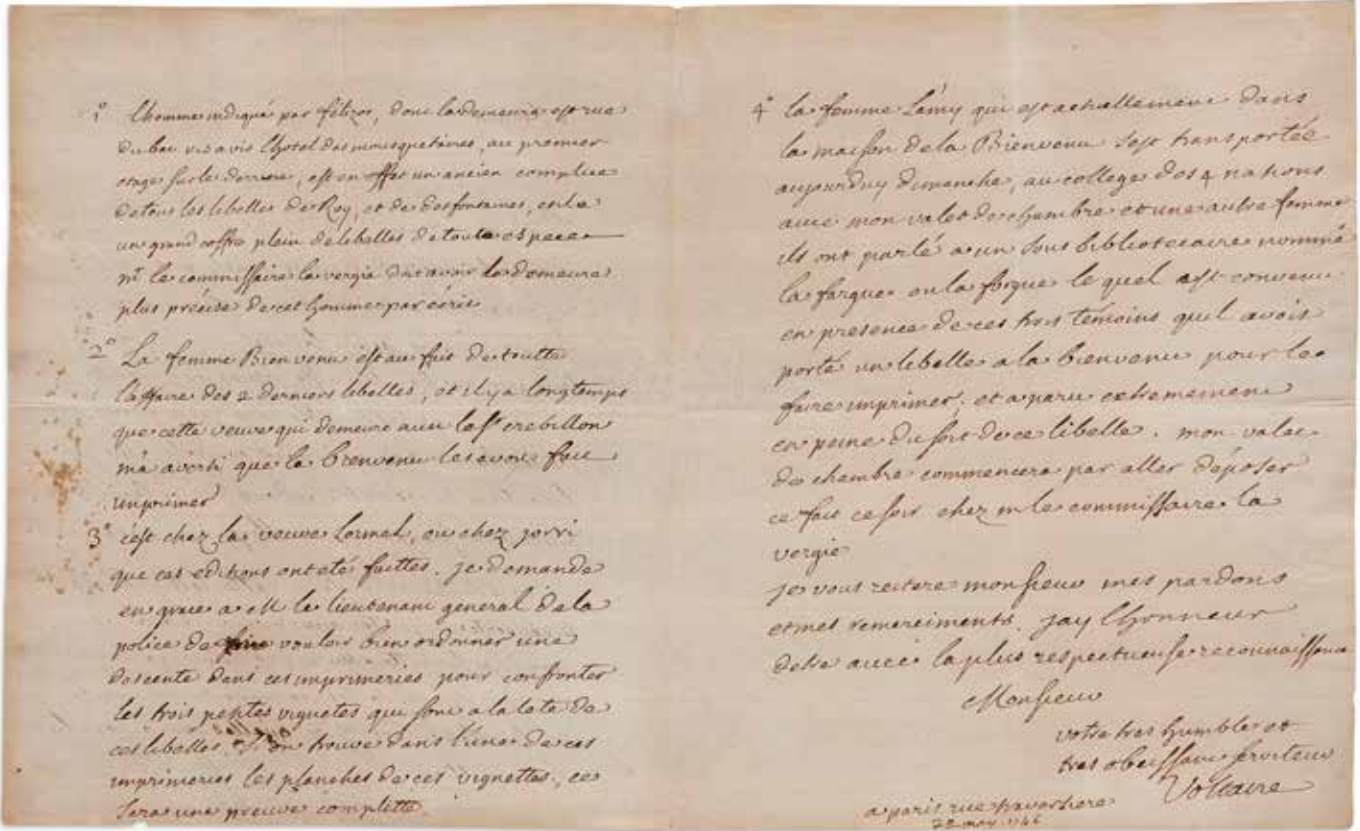 1° lhomme indiqué par félizot, dont la demeure est rue
du bac vis a vis lhotel des mousquetaires, au premier
etage sur le derriere, est en effet un ancien complice
de tous les libelles de Roy, et de desfontaines, et il a
un grand coffre plein de libelles de toute espece
mr le commissaire la vergée doit avoir la demeure
plus précise de cet homme par écrit
2° La femme Bienvenu est au fait de toutte
l'affaire des 2 derniers libelles, et il y a longtemps
que cette veuve qui demeure avec le sr crebillon
m'a averti que la bienvenu les avoit fait
imprimer
3° c'est chez la veuve Lormel, ou chez jorri
que ces editions ont eté faittes. je demande
en grace a M le lieutenant general de la
police de vouloir bien ordonner une
descente dans ces imprimeries pour confronter
les trois petites vignetes qui sont a la tete de
ces libelles. Si on trouve dans l'une de ces
imprimeries les planches de ces vignettes, ce
sera une preuve complette.
4° la femme Lémy qui est actuellement dans
la maison de la Bienvenu sest transportée
aujourduy dimanche, au college des 4 nations
avec mon valet de chambre et une autre femme
ils ont parlé a un sous bibliotecaire nommé
la fargue ou la forgue le quel est convenu
en presence de ces trois témoins quil avoit
porté un libelle a la bienvenu pour le
faire imprimer, et a paru extremement
en peine du sort de ce libelle. mon valet
de chambre commencera par aller déposer
ce fait ce soir chez m le commissaire la
vergée
je vous reitere monsieur mes pardons
et mes remerciments. jay lhonneur
detre avec la plus respectueuse reconnaissance
Monsieur
votre tres humble et
tres obeissant serviteur
Voltaire
a paris rue traversiere
22 may 1746